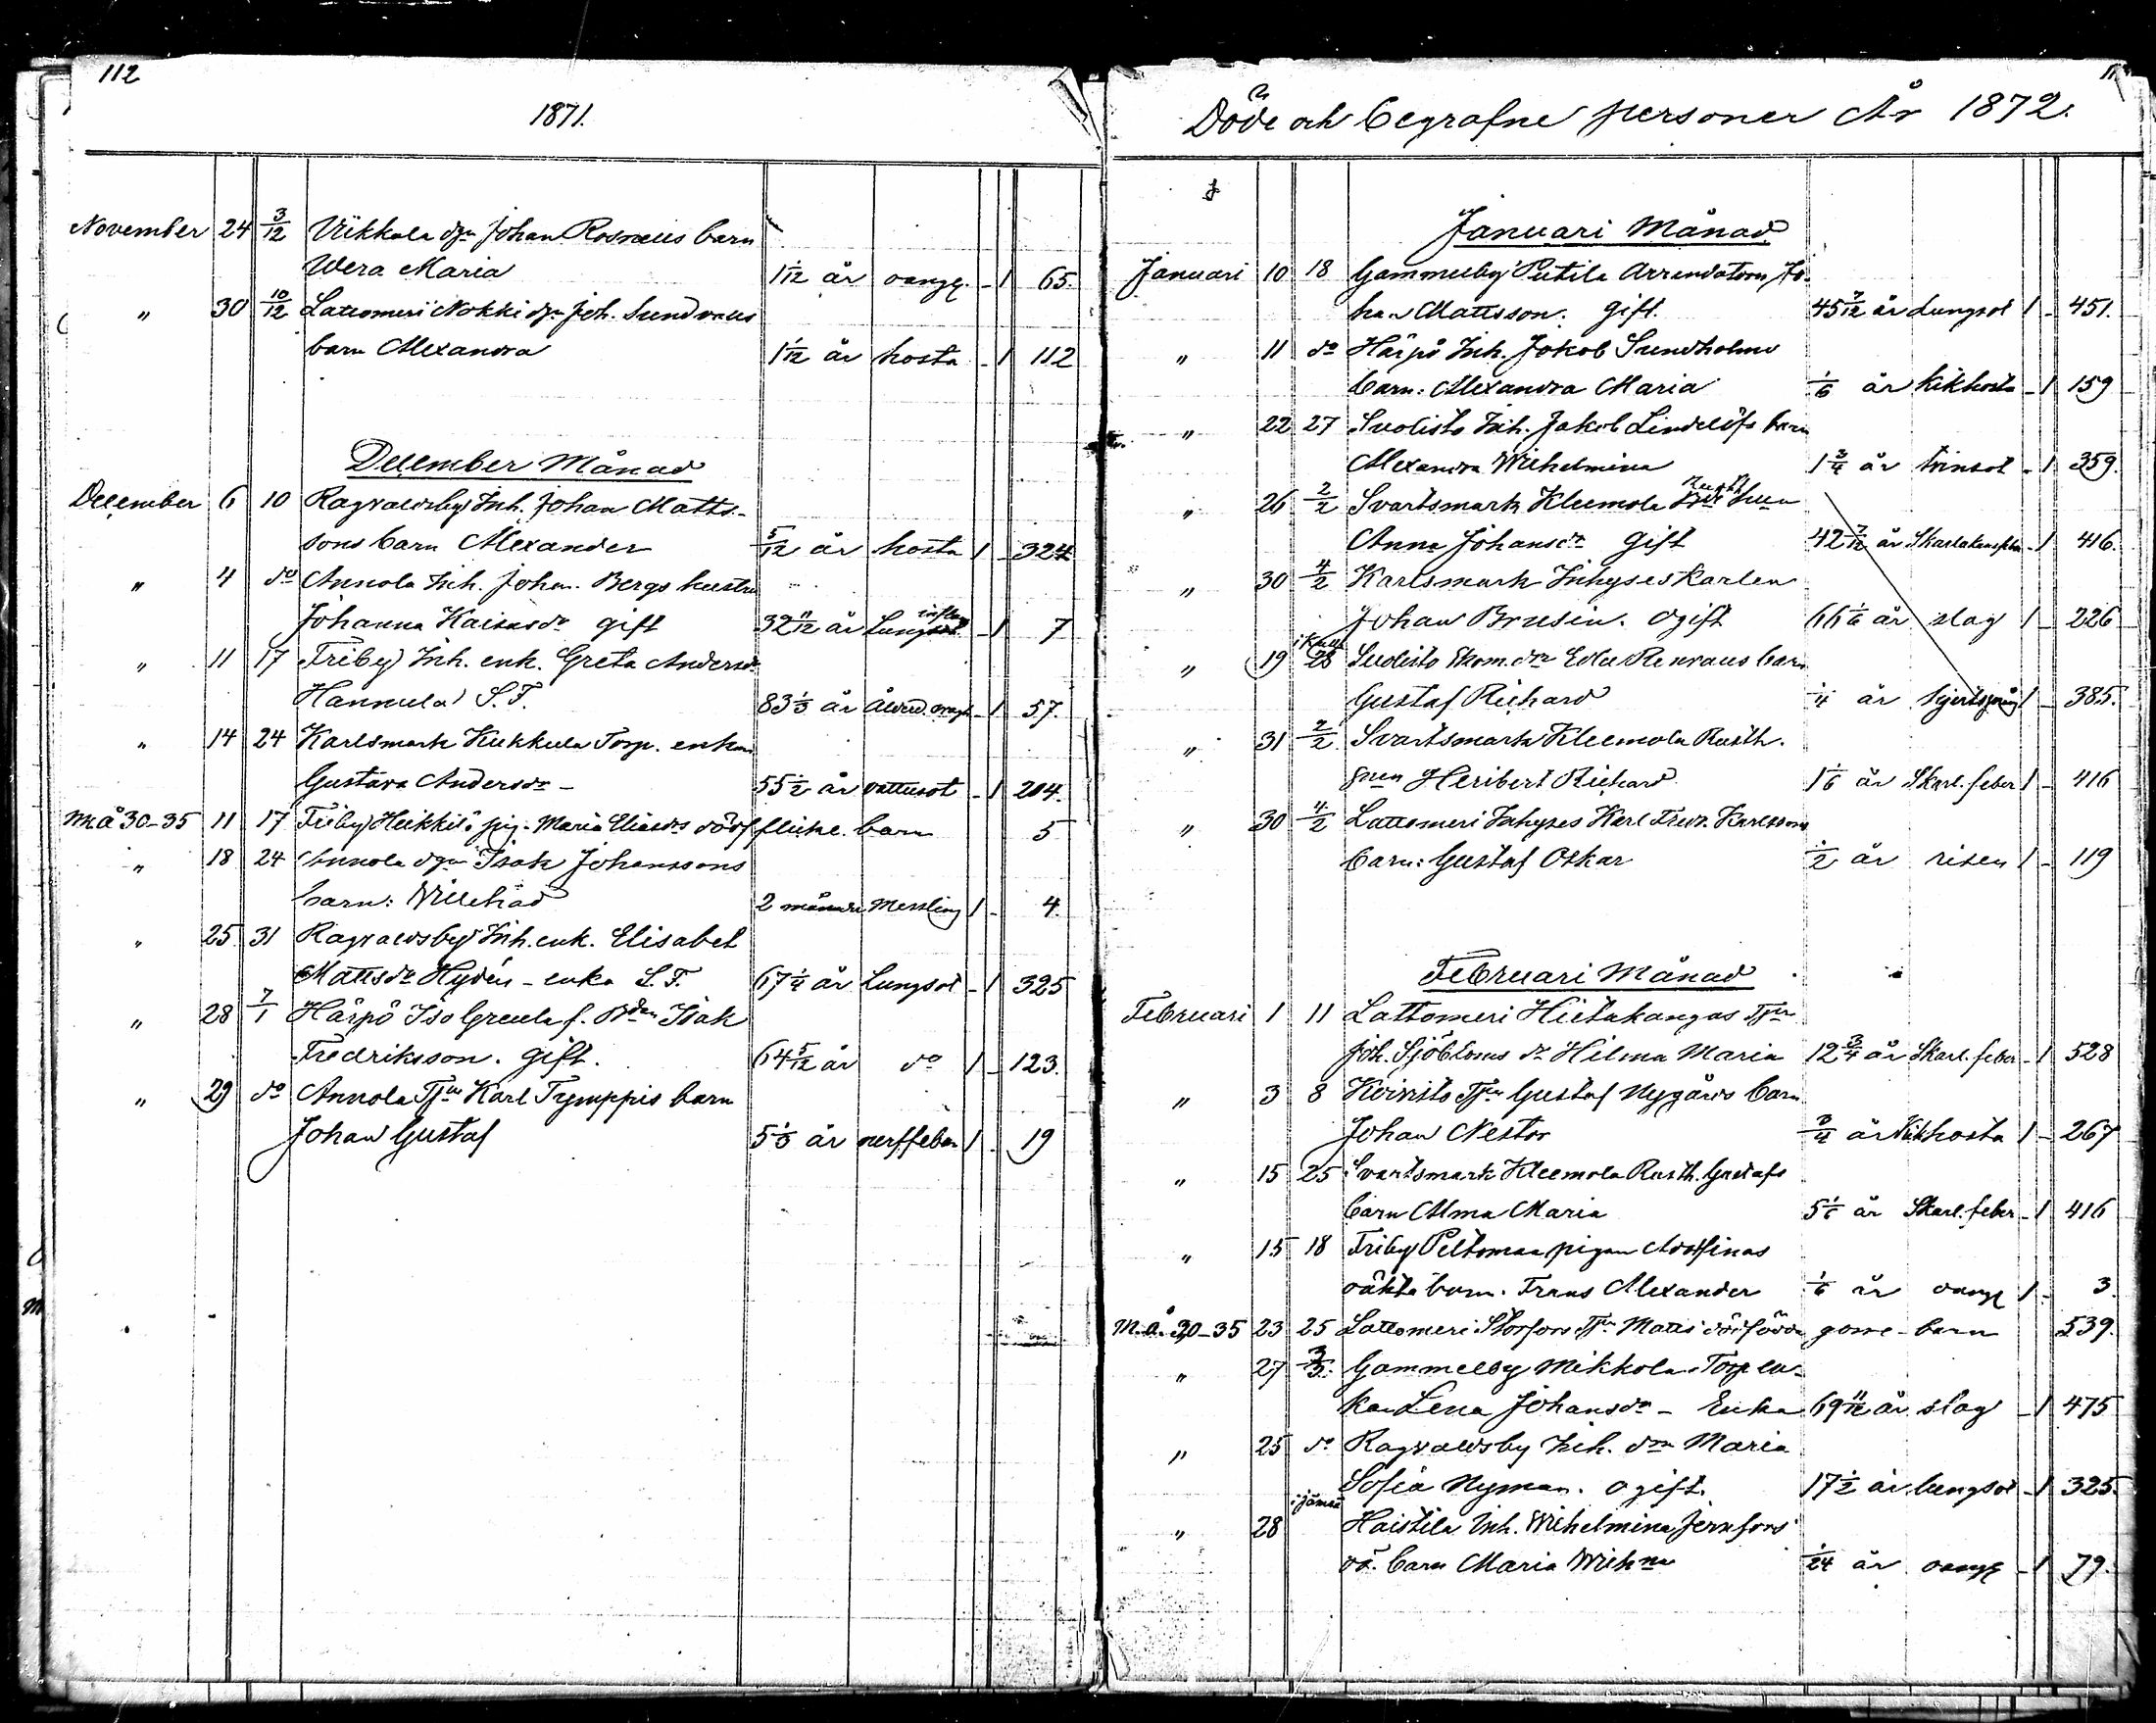 112
1871.
November 24 3/12 Vikkala dgn Johan Rosneus barn
Wera Maria 1 1/12 år oangf. - 1 65.
" 30 10/12 Lattomeri Nokki dgn Joh. Sundvalls
barn Alexandra 1 1/12 år hosta - 1 112
December Månad
December 6 10 Ragvaldsby Inh. Johan Matts-
sons barn Alexander 5/12 år hosta 1 - 324
" 4 do Annola Inh. Johan Bergs hustru
Johanna Kaisasdr gift 32 11/12 år Lung infl. - 1 7
" 11 17 Friby Inh. enk. Greta Andersdr
Hannula S.F. 83 1/3 år Ålderd. svagh. - 1 57.
" 14 24 Karlsmark Kukkula Torp. enkan
Gustava Andersdr - 55 1/2 år vattusot - 1 204.
M å 30-35 11 17 Friby Heikkilä pig. Maria Eliaedrs dödf flicke barn 5
" 18 24 Annola dgn Isak Johanssons
barn: Willehad 2 månader Messling 1 - 4.
" 25 31 Ragvaldsby Inh. enk. Elisabet
Mattsdr Hydén - enka S.F. 67 1/4 år Lungsot - 1 325
" 28 7/1 Härpö Iso Greula f. Bden Isak
Fredriksson. gift. 64 5/12 år do 1 - 123.
" 29 do Annola Tjn Karl Tymppis barn
Johan Gustaf 5 1/3 år nerffeber 1 - 19
Döde och begrafne personer År 1872.
Januari Månad
Januari 10 18 Gammelby Pietila Arrendatorn Jo-
han Mattsson. Gift. 45 7/12 år Lungsot 1 - 451.
" 11 do Härpö Inh. Jakob Sundholms
barn: Alexandra Maria 1/6 år kikhosta - 1 159
" 22 27 Suolisto Inh. Jakob Lindelöfs barn
Alexandra Wilhelmina 1 3/4 år tvinsot - 1 359.
" 26 2/2 Svartsmark Kleemola Rusth hun
Anna Johansdr Gift 42 7/12 år Skarlakansfeber - 1 416.
" 30 4/2 Karlsmark Inhyseskarlen
Johan Brusin. Ogift 66 1/6 år slag 1 - 226
" 19 28 Suolisto Ekom. dr Eda Renvaus barn
Gustaf Richard 1/4 år hjertspång 1 - 385.
" 31 2/2 Svartsmark Kleemola Rusth.
snen Heribert Richard 1 1/6 år Skarl. feber 1 - 416
" 30 4/2 Lattomeri Inhyses Karl Fredr. Karlssons
barn: Gustaf Oskar 1/2 år risen 1 - 119
Februari Månad
Februari 1 11 Lattomeri Hietakangas Tjn
Joh. Sjöbloms dr Hilma Maria 12 3/4 år Skarl. feber - 1 528
" 3 8 Koivisto Tjn Gustaf Nygårds barn
Johan Nestor 3/4 år Kikhosta 1 - 267
" 15 25 Svartsmark Kleemola Rusth. Gustafs
barn Alma Maria 5 1/6 år Skarl. feber - 1 416
" 15 18 Friby Peltomaa pigan Adolfinas
oäkta barn. Frans Alexander 1/6 år oangf 1 - 3.
M.å. 30-35 23 25 Lattomeri Storfors Tjn Matts dödfödde gosse-barn 539.
" 27 3/3 Gammelby Mikkola Torp en-
kan Lena Johansdr - Enka 69 11/12 år slag - 1 475
" 25 do Ragvaldsby Inh. dr Maria
Sofia Nyman. ogift. 17 1/2 år lungsot - 1 325.
" 28 Haistila Inh. Wilhelmina Jernfors
oä. barn Maria Wilhna 1/24 år oangf - 1 79.